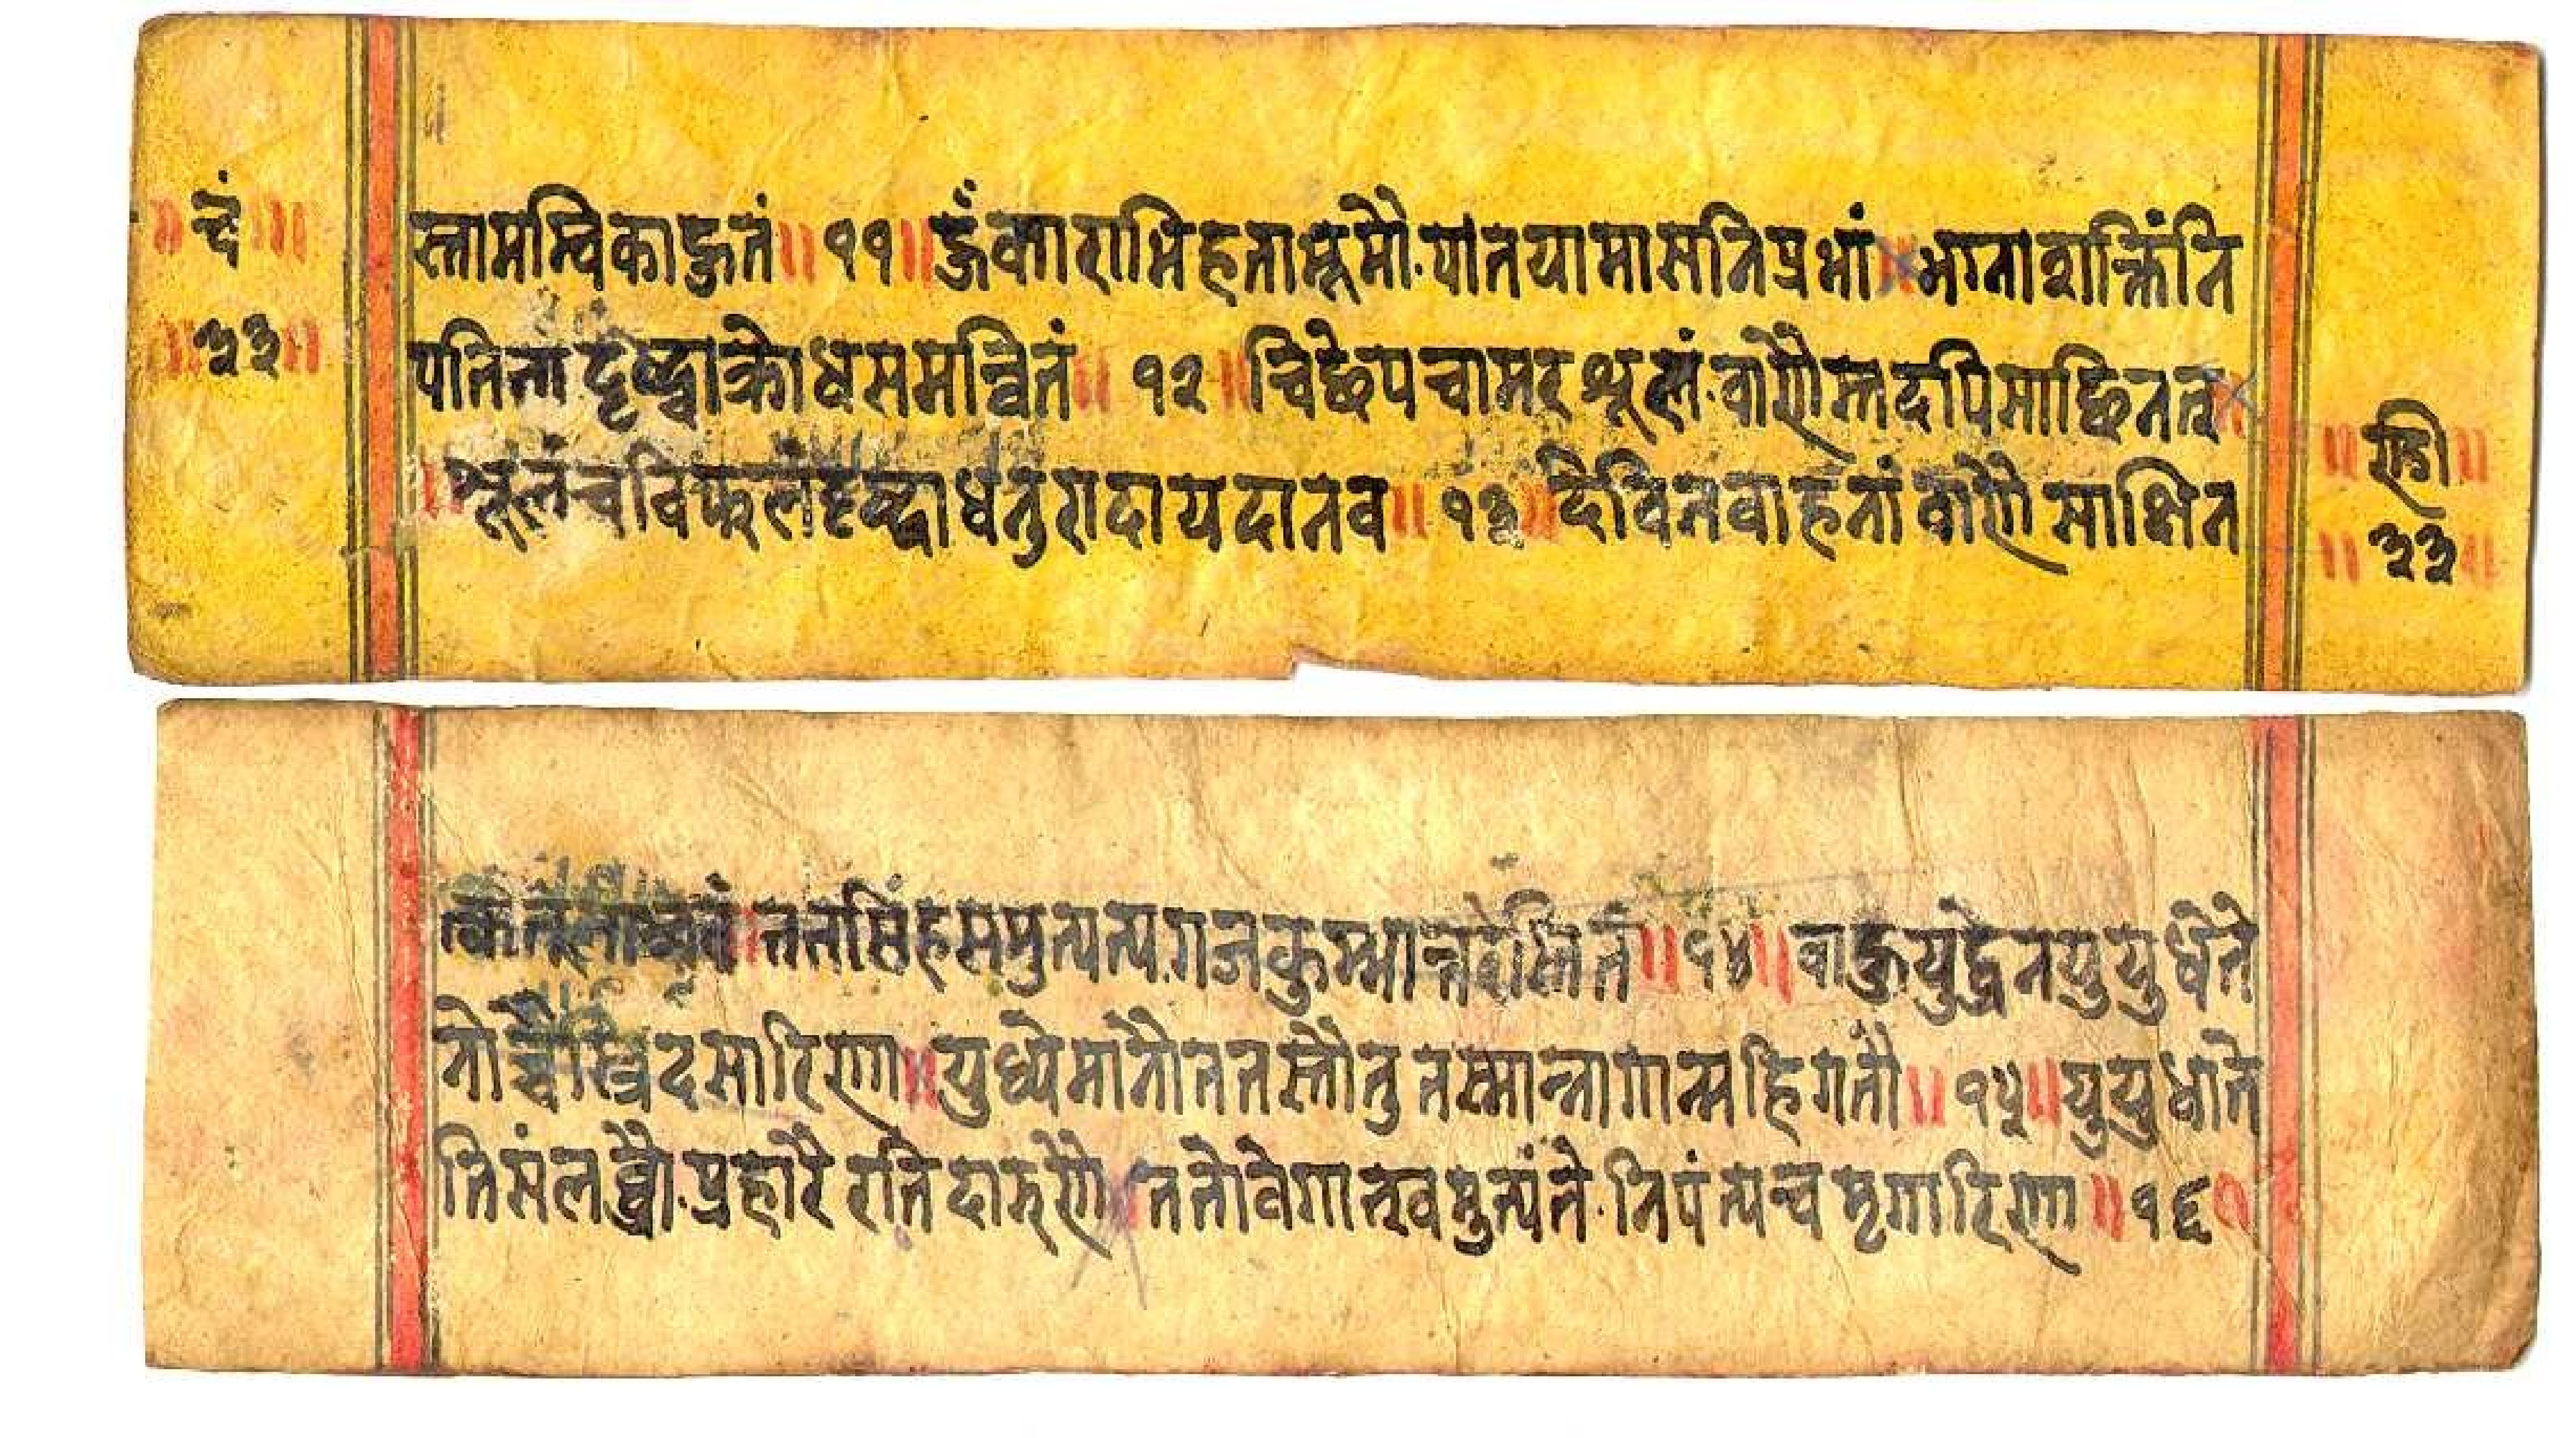 ॥ चं ॥
॥ ३३ ॥
स्तामम्विकाद्भुतं ॥ ११ ॥ हुँकाराभिहताम्भूमौ.पातयामासनिप्रभां ॥ भग्नाशक्तिंनि
पतितां दृष्ट्वाक्रोधसमन्वितं ॥ १२ ॥ चिछेपचामरशूलं.वाणैस्तदपिसाछिनत् ॥
॥ शूलंचविफलंदृष्ट्वाधनुरादायदानव ॥ १३ ॥ देवितवाहनांवाणै साक्षित
॥ ण्डी ॥
॥ ३३ ॥
ततसिंहसमुत्पत्य.गजकुम्भान्तरे ॥ १४ ॥ वाहुयुद्धेनयुयुधेते
सारिणा ॥ युध्येमानौततस्तौतु तस्मान्नागान्महिगतौ ॥ १५ ॥ युयुधाते
तिसंलब्धौ.प्रहारै रतिदारुणै ॥ ततोवेगात्खमुत्पंते.निपंत्यच मृगारिणा ॥ १६ ॥